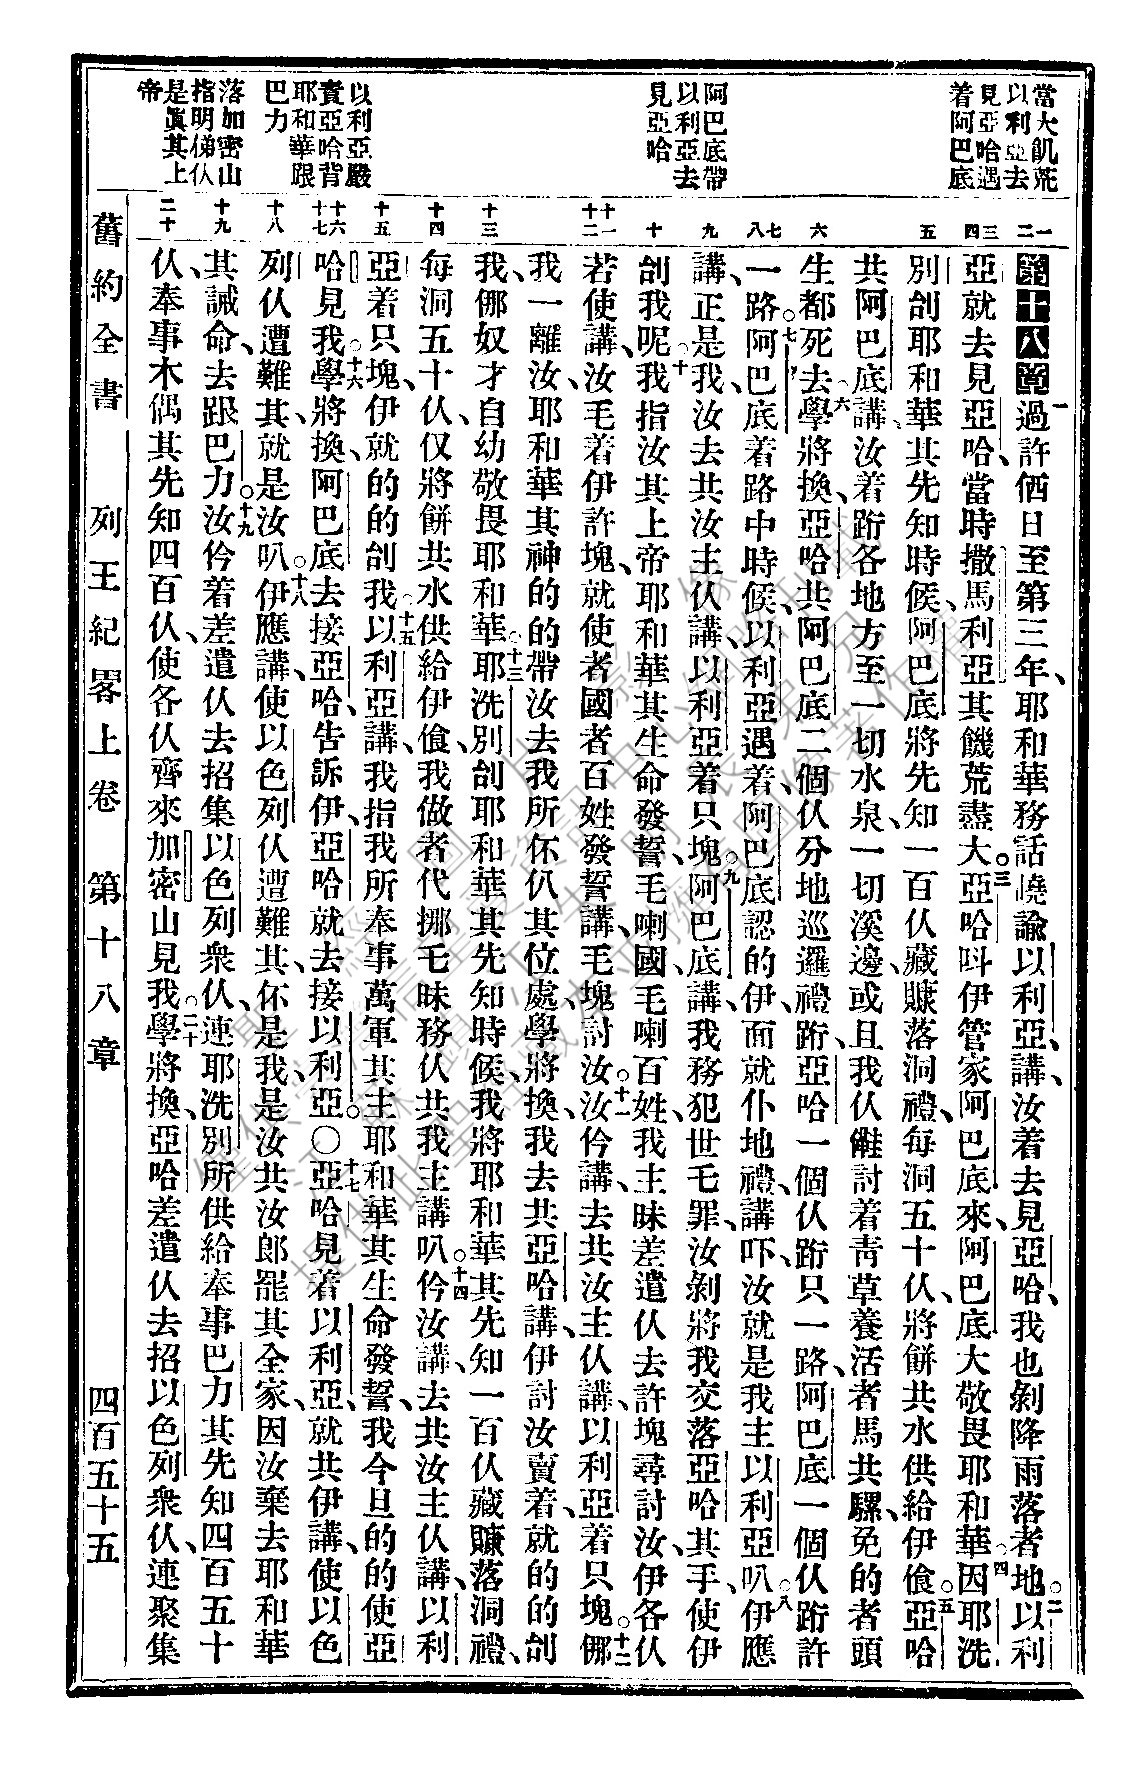 當大飢荒
以利亞去
見亞哈遇
着阿巴底
阿巴底帶
以利亞去
見亞哈
以利亞嚴
責亞哈背
耶和華跟
巴力
落加密山
指明俤仸
是眞其上
帝
一 二 三 四 五 六 七 八 九 十 十一 十二 十三 十四 十五 十六 十七 十八 十九 二十
第十八章 一過許価日至第三年、耶和華務話嶢諭以利亞、講、汝着去見亞哈、我也剝降雨落者地。二以利
亞就去見亞哈、當時撒馬利亞其饑荒盡大。三亞哈呌伊管家阿巴底來、阿巴底大敬畏耶和華。四因耶洗
別刣耶和華其先知時候、阿巴底將先知一百仸、藏賺落洞禮、每洞五十仸、將餅共水供給伊飡。五亞哈
共阿巴底講、汝着跨各地方至一切水泉、一切溪邊、或且我仸儺討着靑草養活者馬共騾、免的者頭
生都死去。六學將換、亞哈共阿巴底二個仸分地巡邏禮、跨亞哈一個仸跨只一路、阿巴底一個仸跨許
一路。七阿巴底着路中時候、以利亞遇着阿巴底認的伊、面就仆地禮、講、吓、汝就是我主以利亞。八叭伊應
講、正是我、汝去共汝主仸講、以利亞着只塊。九阿巴底講、我務犯世乇罪、汝剝將我交落亞哈其手、使伊
刣我呢。十我指汝其上帝耶和華其生命發誓、毛喇國、毛喇百姓、我主昧差遣仸去許塊尋討汝、伊各仸
若使講、汝毛着伊許塊、就使者國者百姓發誓講、毛塊討汝。十一汝仱講、去共汝主仸講、以利亞着只塊。十二㑚
我一離汝、耶和華其神的的帶汝去我所伓仈其位處、學將換、我去共亞哈講、伊討汝賣着、就的的刣
我、㑚奴才自幼敬畏耶和華。十三耶洗別刣耶和華其先知時候、我將耶和華其先知一百仸藏賺落洞禮、
每洞五十仸、仅將餅共水供給伊飡、我做者代挪乇昧務仸共我主講叭。十四仱汝講、去共汝主仸講、以利
亞着只塊、伊就的的刣我。十五以利亞講、我指我所奉事萬軍其主耶和華其生命發誓、我今旦的的使亞
哈見我。十六學將換、阿巴底去接亞哈、告訴伊、亞哈就去接以利亞。〇十七亞哈見着以利亞、就共伊講、使以色
列仸遭難其、就是汝叭。十八伊應講、使以色列仸遭難其、伓是我、是汝共汝郎罷其全家、因汝棄去耶和華
其誡命、去跟巴力。十九汝仱着差遣仸去招集以色列衆仸、連耶洗別所供給奉事巴力其先知四百五十
仸、奉事木偶其先知四百仸、使各仸齊來加密山見我。二十學將換、亞哈差遣仸去招以色列衆仸、連聚集
舊約全書 列王紀畧上卷 第十八章 四百五十五